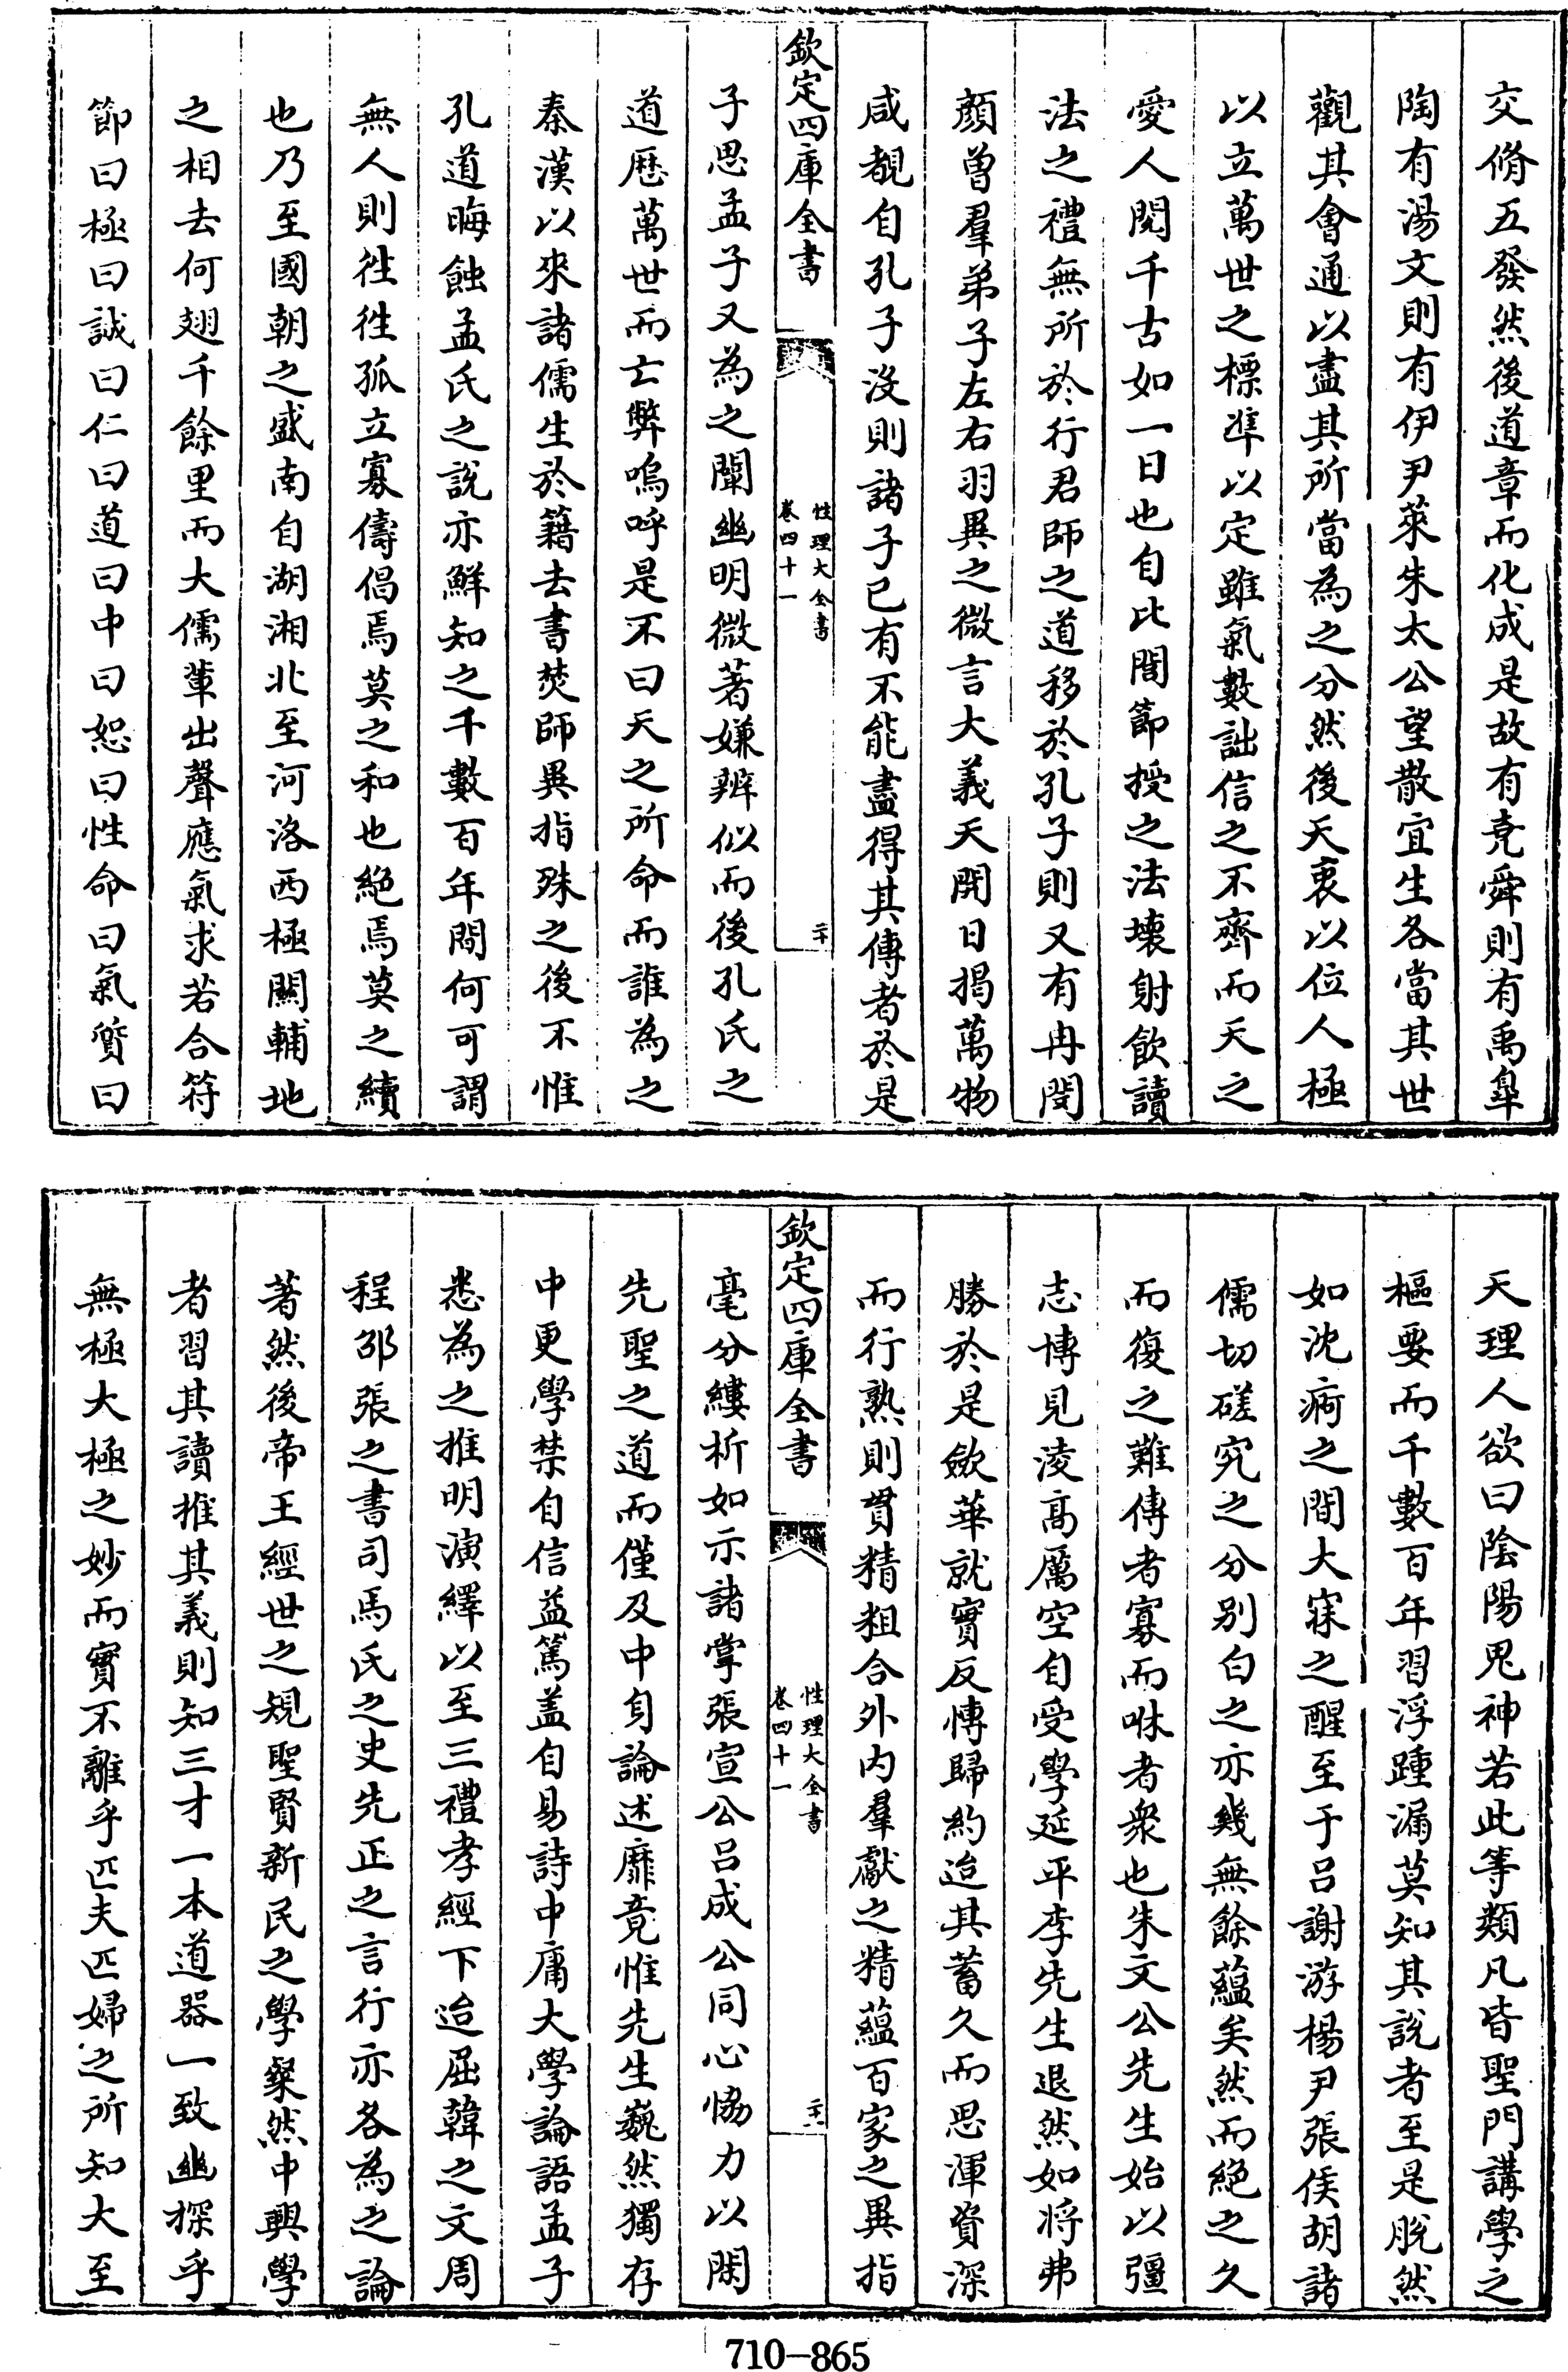 交脩五發然後道章而化成是故有堯舜則有禹臯
陶有湯文則有伊尹萊朱太公望散宜生各當其世
觀其會通以盡其所當為之分然後天衷以位人極
以立萬世之標準以定雖氣數詘信之不齊而天之
愛人閱千古如一日也自比閭節授之法壊射飲讀
法之禮無所於行君師之道移於孔子則又有冉閔
顔曽羣弟子左右羽異之微言大義天開日揭萬物
咸覩自孔子沒則諸子已有不能盡得其傳者於是
欽定四庫全書
性理大全書
卷四十一
二十
子思孟子又為之闡幽明微著嫌辨似而後孔氏之
道歴萬世而亡弊嗚呼是不曰天之所命而誰為之
秦漢以來諸儒生於籍去書焚師異指殊之後不惟
孔道晦蝕孟氏之說亦鮮知之千數百年間何可謂
無人則徃徃孤立寡儔倡焉莫之和也絶焉莫之續
也乃至國朝之盛南自湖湘北至河洛西極關輔地
之相去何翅千餘里而大儒輩出聲應氣求若合符
節曰極曰誠曰仁曰道曰中曰恕曰性命曰氣質曰
天理人欲曰陰陽鬼神若此等類凡皆聖門講學之
樞要而千數百年習浮踵漏莫知其說者至是脫然
如沈痾之間大寐之醒至于吕謝游楊尹張侯胡諸
儒切磋究之分别白之亦幾無餘藴矣然而絶之久
而復之難傳者寡而咻者衆也朱文公先生始以彊
志博見淩髙厲空自受學延平李先生退然如將弗
勝於是斂華就實反慱歸約迨其蓄久而思渾資深
而行熟則貫精粗合外内羣獻之精藴百家之異指
欽定四庫全書
性理大全書
卷四十一
二十一
毫分縷析如示諸掌張宣公吕成公同心恊力以閑
先聖之道而僅及中身論述靡竟惟先生巍然獨存
中更學禁自信益篤盖自易詩中庸大學論語孟子
悉為之推明演繹以至三禮孝經下迨屈韓之文周
程邵張之書司馬氏之史先正之言行亦各為之論
著然後帝王經世之規聖賢新民之學粲然中興學
者習其讀推其義則知三才一本道器一致幽探乎
無極太極之妙而實不離乎匹夫匹婦之所知大至
710-865